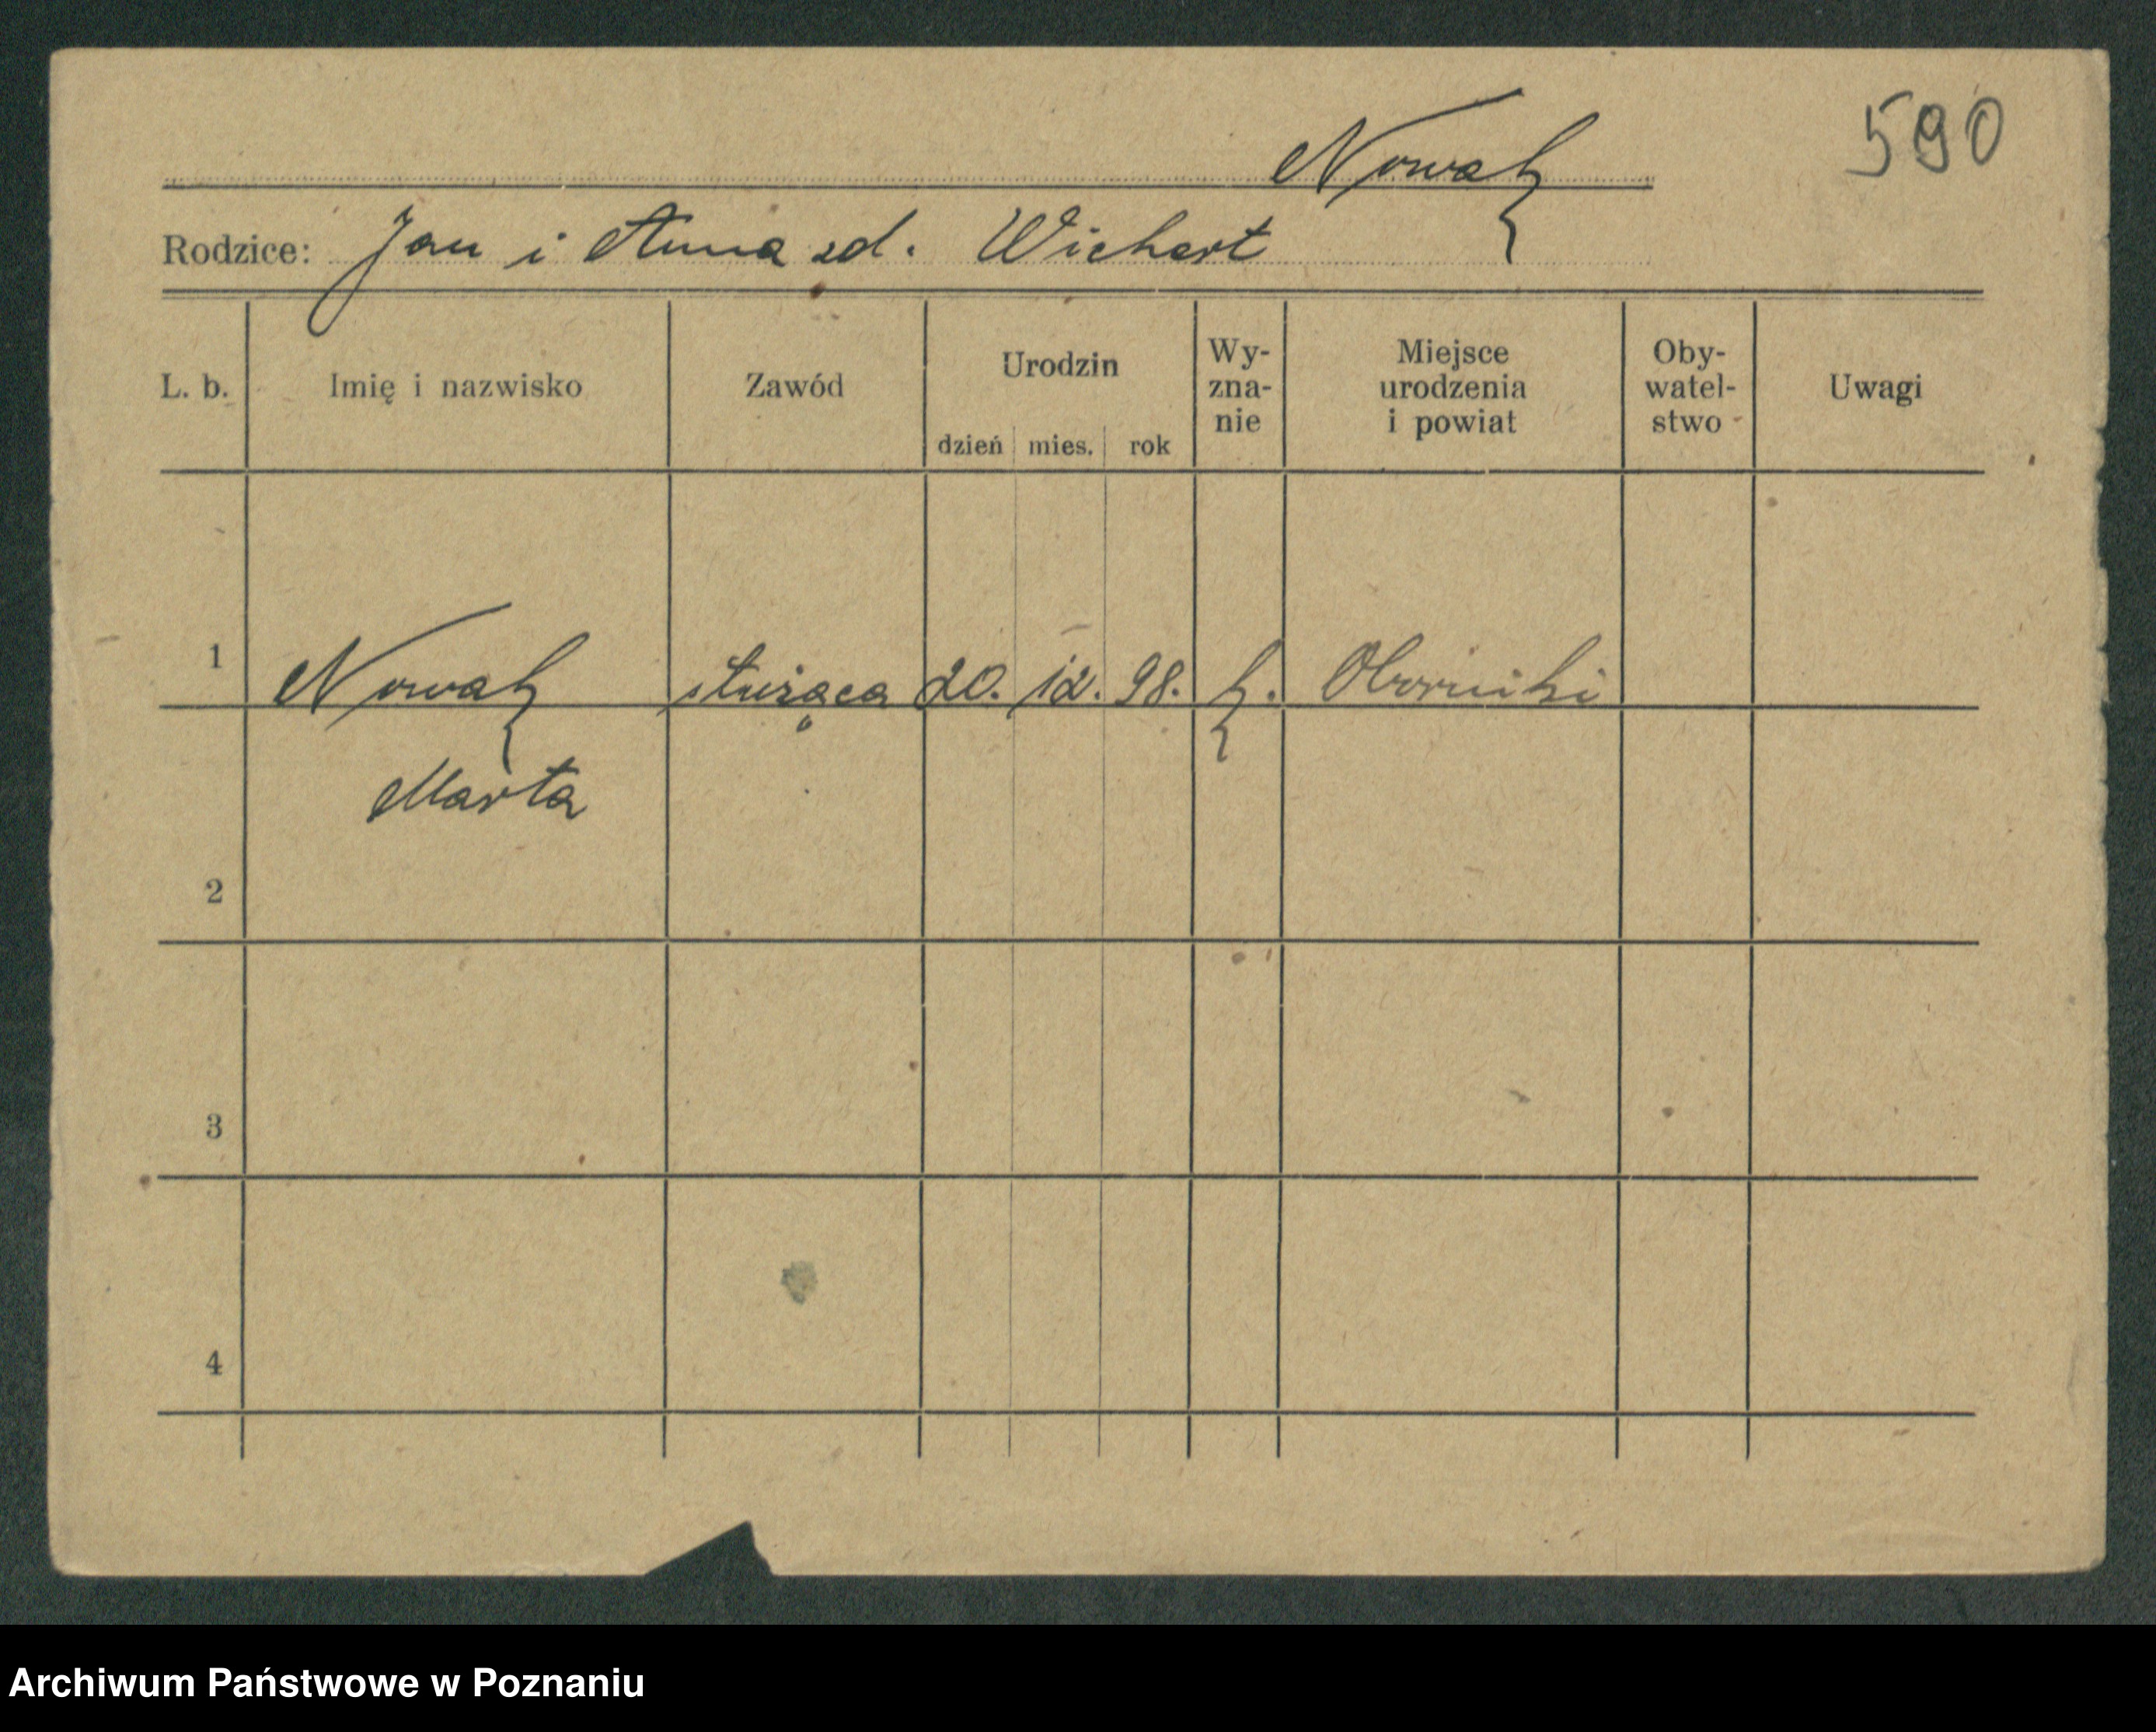 590
Nowak
Rodzice: Jan i Anna zd. Wichert
L. b. Imię i nazwisko Zawód Urodzin dzień mies. rok Wy-zna-nie Miejsce urodzenia i powiat Oby-watel-stwo Uwagi
1 Nowak służąca 20. 12. 98. k. Oborniki
Marta
2
3
4
Archiwum Państwowe w Poznaniu